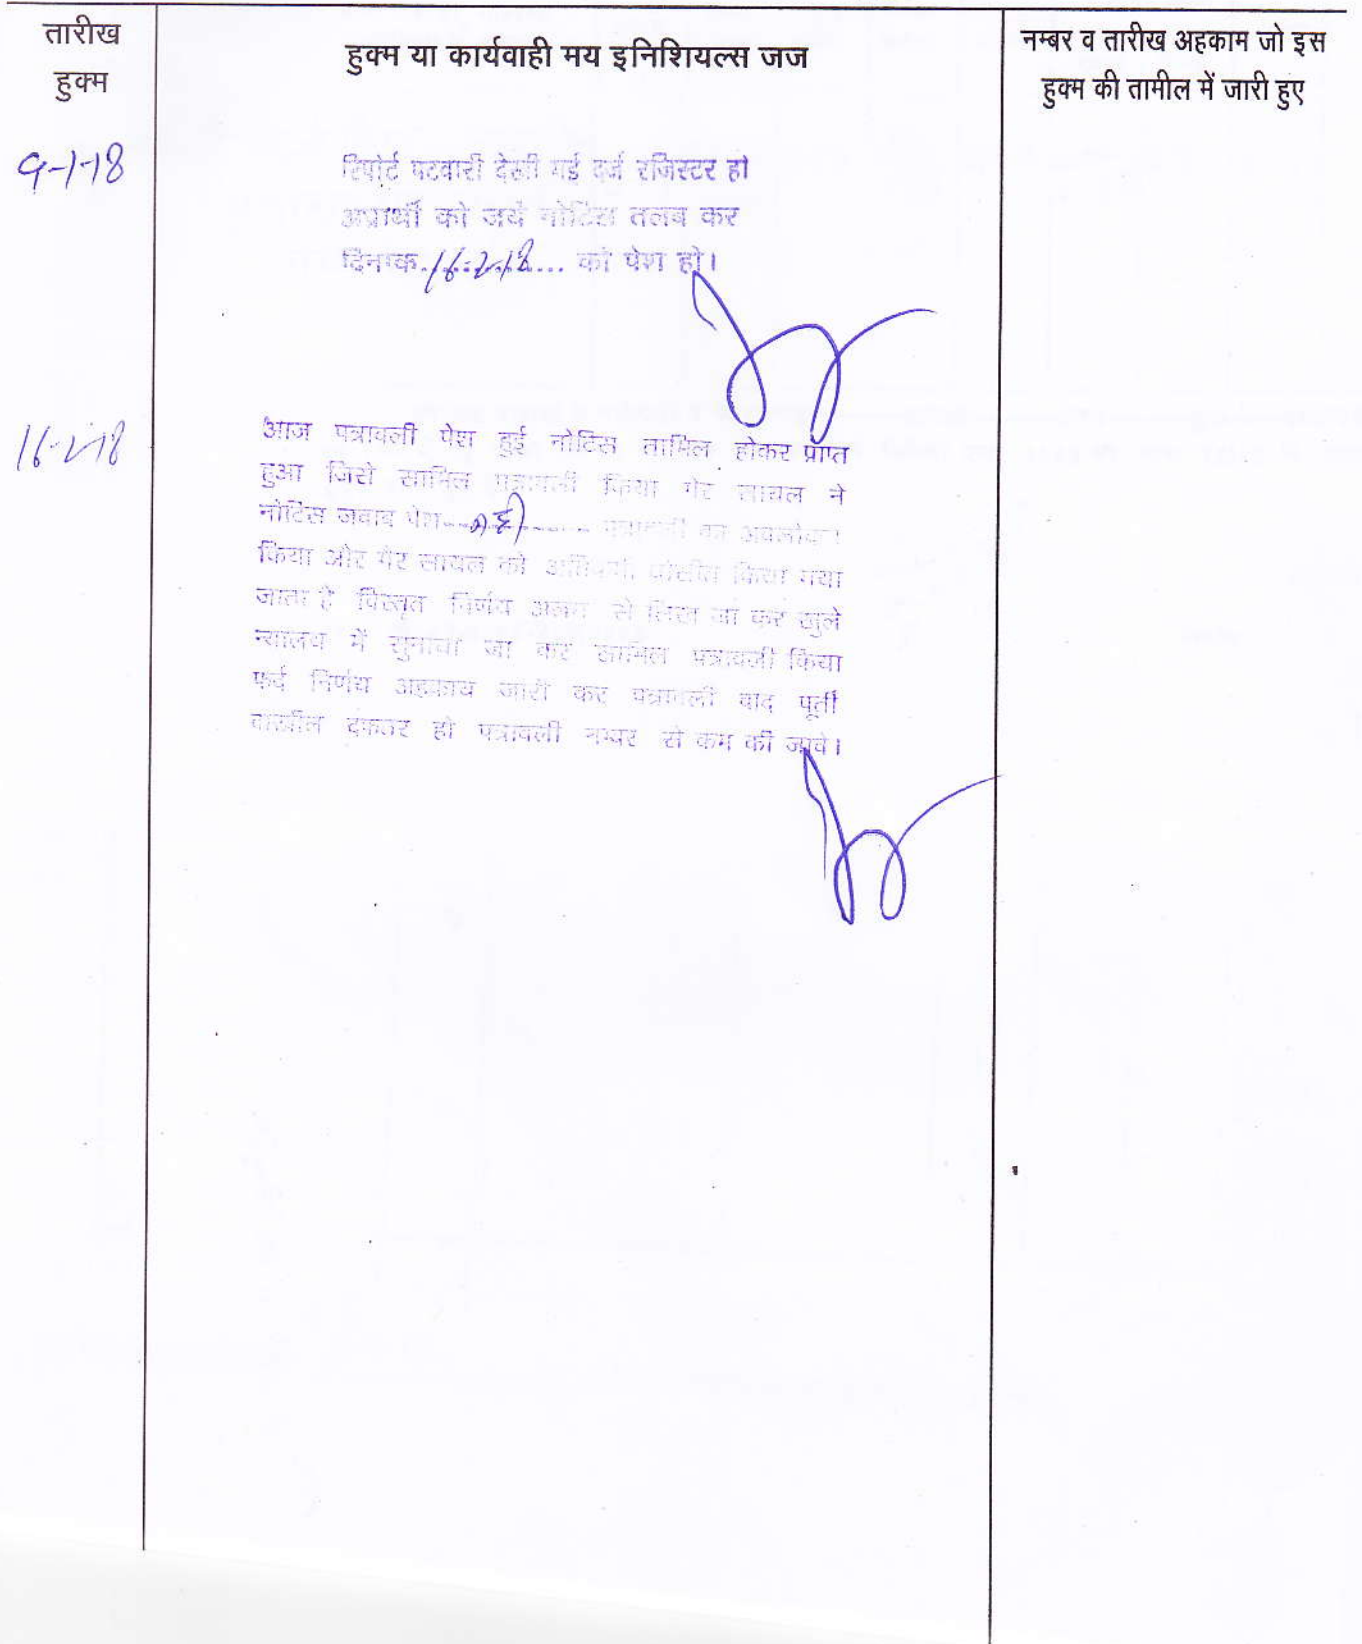 तारीख
हुक्म
हुक्म या कार्यवाही मय इनिशियल्स जज
नम्बर व तारीख अहकाम जो इस
हुक्म की तामील में जारी हुए
9-1-18
रिपोर्ट पटवारी देखी गई दर्ज रजिस्टर हो
अप्रार्थी को जर्ये नोटिस तलब कर
दिनांक 16-2-18 को पेश हो।
16-2-18
आज पत्रावली पेश हुई नोटिस तामिल होकर प्राप्त
हुआ जिसे सामिल पत्रावली किया गेर सायल ने
नोटिस जवाब पेश नहीं पत्रावली का अवलोकन
किया और गेर सायल को अतिक्रमी घोसीत किया गया
जाता है विस्तृत निर्णय अलग से लिखा जा कर खुले
न्यालय में सुनाया जा कर सामिल पत्रावली किया
फर्द निर्णय अहकाम जारी कर पत्रावली बाद पूर्ती
दाखील दफ्तर हो पत्रावली नम्बर से कम की जावे।